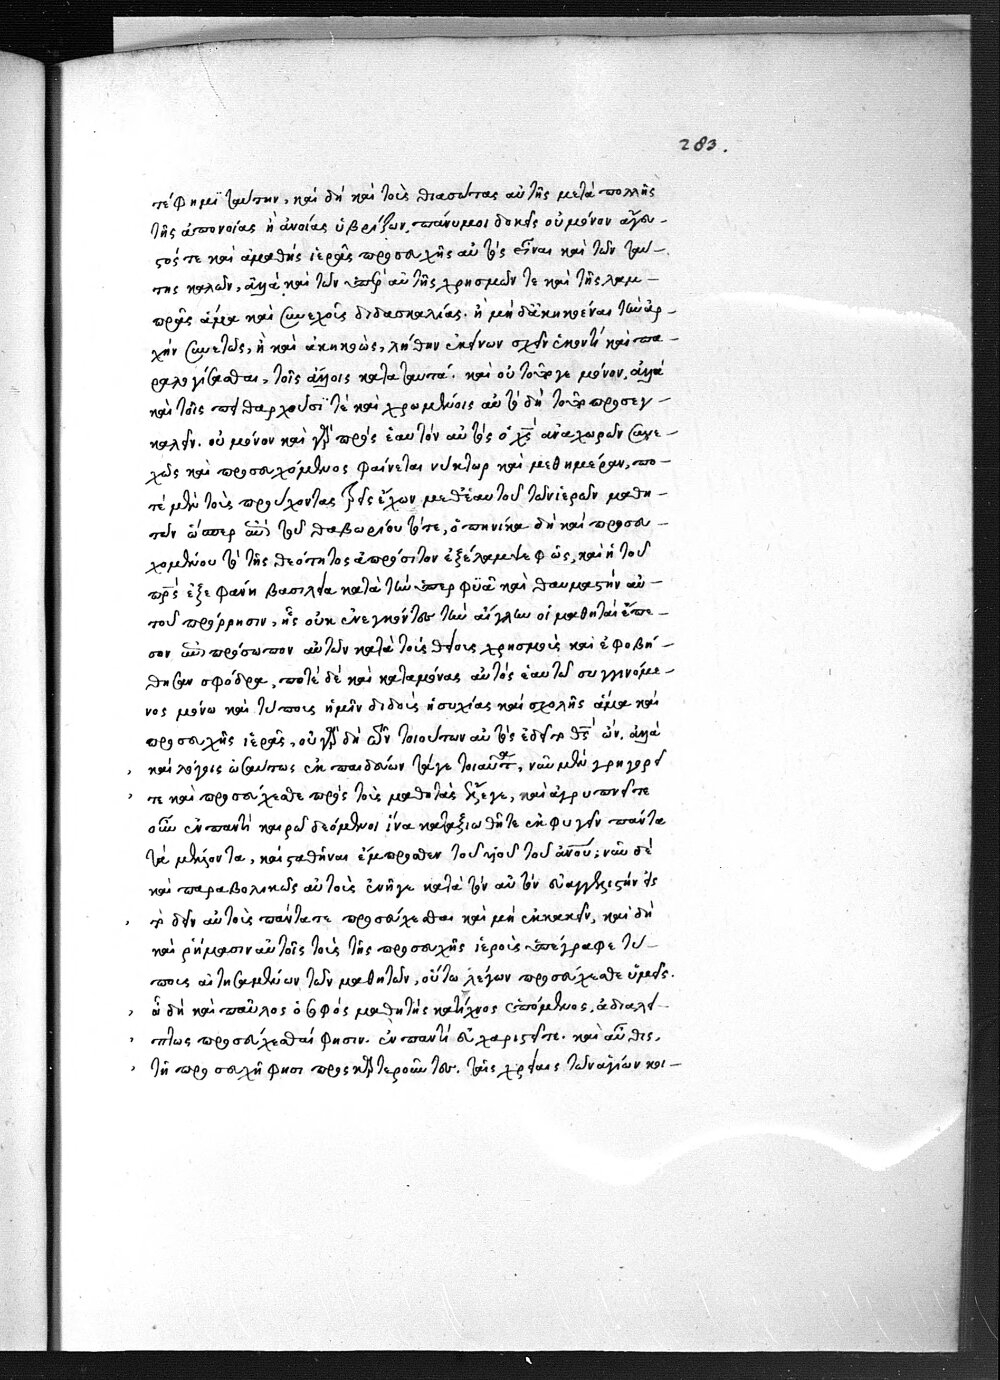 283.
τέ φημι ταύτην, καὶ δὴ καὶ τοὺς θιασώτας αὐτῆς μετὰ πολλῆς
τῆς ἀπονοίας ἢ ἀνοίας ὑβρίζων. πάνυ μοι δοκεῖς οὐ μόνον ἄγευ-
στός τε καὶ ἀμαθὴς ἱερᾶς προσευχῆς αὐτὸς εἶναι καὶ τῶν ταύ-
της καλῶν, ἀλλὰ καὶ τῶν περὶ αὐτῆς χρησμῶν τε καὶ τῆς λαμ-
πρᾶς ἅμα καὶ συνεχοῦς διδασκαλίας. ἢ μὴ διακηκοέναι τὴν ἀρ-
χὴν συνετῶς, ἢ καὶ ἀκηκοὼς, λήθην ἐκείνων σχεῖν ἑκοντὶ καὶ πα-
ραλογίζεσθαι, τοῖς ἄλλοις κατὰ ταυτά. καὶ οὐ τοῦτό γε μόνον, ἀλλὰ
καὶ τοῖς πειθαρχοῦσί τε καὶ χρωμένοις αὐτὸ δὴ τοῦτο προσεγ-
καλεῖν. οὐ μόνον καὶ γὰρ πρὸς ἑαυτὸν αὐτὸς ὁ χς ἀναχωρῶν συνε-
χῶς καὶ προσευχόμενος φαίνεται νύκτωρ καὶ μεθημέραν, πο-
τὲ μὲν τοὺς προύχοντας τρεῖς ἔχων μεθ' ἑαυτοῦ τῶν ἱερῶν μαθη-
τῶν ὥσπερ ἐπὶ τοῦ θαβωρίου τότε, ὁπηνίκα δὴ καὶ προσευ-
χομένου τὸ τῆς θεότητος ἀπρόσιτον ἐξέλαμψε φῶς, καὶ ἡ τοῦ
πρς ἐξεφάνη βασιλεία κατὰ τὴν ὑπερφυᾶ καὶ θαυμαστὴν αὐ-
τοῦ πρόρρησιν, ἧς οὐκ ἐνεγκόντες τὴν αἴγλην οἱ μαθηταὶ ἔπε-
σον ἐπὶ πρόσωπον αὐτῶν κατὰ τοὺς θείους χρησμοὺς καὶ ἐφοβή-
θησαν σφόδρα, ποτὲ δὲ καὶ καταμόνας αὐτὸς ἑαυτῶ συγγινόμε-
νος μόνω καὶ τύπους ἡμῖν διδοὺς ἡσυχίας καὶ σχολῆς ἅμα καὶ
προσευχῆς ἱερᾶς, οὐ γὰρ δὴ τῶν τοιούτων αὐτὸς ἐδεῖτο θς ὤν. ἀλλὰ
καὶ λόγοις ὡσαύτως ἐκπαιδεύων τάγε τοιαῦτα, νῦν μὲν γρηγορεῖ
τε καὶ προσεύχεσθε πρὸς τοὺς μαθητὰς ἔλεγε, καὶ ἀγρυπνεῖτε
οὖν ἐν παντὶ καιρῶ δεόμενοι ἵνα καταξιωθῆτε ἐκφυγεῖν πάντα
τὰ μέλλοντα, καὶ σταθῆναι ἔμπροσθεν τοῦ υἱοῦ τοῦ ἀνου; νῦν δὲ
καὶ παραβολικῶς αὐτοὺς ἐνῆγε κατὰ τὸν αὐτὸν εὐαγγελιστὴν εἰς
τὸ δεῖν αὐτοὺς πάντοτε προσεύχεσθαι καὶ μὴ ἐκκακεῖν, καὶ δὴ
καὶ ῥήμασιν αὐτοῖς τοὺς τῆς προσευχῆς ἱεροὺς ὑπέγραφε τύ-
πους αἰτησαμένων τῶν μαθητῶν, οὕτω λέγων προσεύχεσθε ὑμεῖς.
ὧ δὴ καὶ παῦλος ὁ σοφὸς μαθητὴς κατίχνος ἑπόμενος, ἀδιαλεί-
πτως προσεύχεσθαί φησιν. ἐν παντὶ εὐχαριστεῖτε. καὶ αὖθις,
τῆ προσευχῆ φησι προσκαρτεροῦντες. ταῖς χρείαις τῶν ἁγίων κοι-